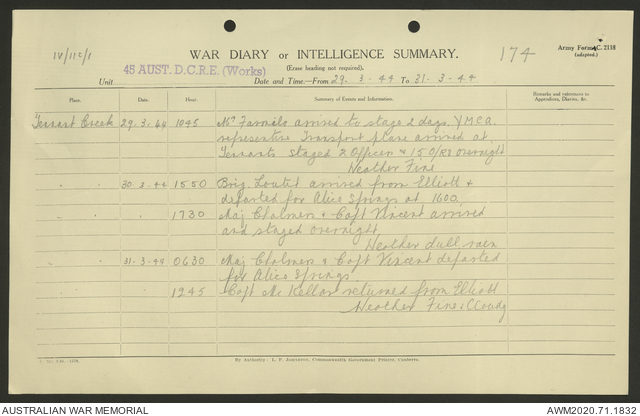 IV/11c/1
WAR DIARY or INTELLIGENCE SUMMARY.
174
Army Form C. 2118
(adapted.)
(Erase heading not required).
Unit 45 AUST. D.C.R.E. (Works)
Date and Time—From 29. 3. 44 To 31. 3. 44
Place. Date. Hour. Summary of Events and Information. Remarks and references to
Appendices, Diaries, &c.
Tennant Creek 29.3.44 1045 Mr Farmilo arrived to stage 2 days. YMCA
representive Transport plane arrived at
Tennants staged 2 Officer & 15 O/Rs overnight
Weather Fine
" " 30.3.44 1550 Brig. Loutit arrived from Elliott &
departed for Alice Springs at 1600.
" " 1730 Maj Chalmers & Capt Vincent arrived
and staged overnight.
Weather dull rain
" " 31.3.44 0630 Maj Chalmers & Capt Vincent departed
for Alice Springs.
" " 1245 Capt McKellar returned from Elliott
Weather Fine & Cloudy
By Authority: L. F. Johnston, Commonwealth Government Printer, Canberra.
AUSTRALIAN WAR MEMORIAL
AWM2020.71.1832